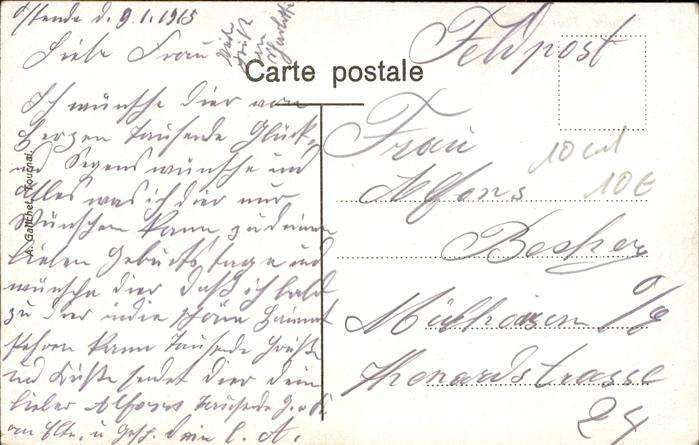 Ostende d. 9.1.1915
Liebe Frau
Carte postale
Feldpost
Ich wünsche dier von
Herzen Tausende Glück
und Segens wünsche und
Alles was ich dier nur
Wünschen kann zu deinem
lieben Geburts tage und
wünsche dier daß ich bald
zu dier in die schöne Heimat
kehren kann Tausende Grüße
und Küße sendet dier dein
lieber Alfons Tausende
an Elt. u Gesch. dein l. A.
A. Gallchet, Tournai.
Frau
Alfons
Becher
Mülhausen O/E
Thenardstrasse
24
10 €